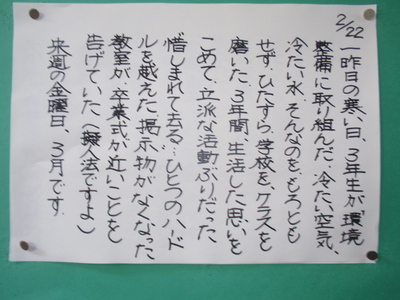 2/22
一昨日の寒い日、3年生が"環境
整備に取り組んだ。冷たい空気、
冷たい水、そんなのを、もろとも
せず、ひたすら、学校を、クラスを
磨いた。3年間、生活した思いを
こめて、立派な活動ぶりだった
惜しまれて去る…ひとつのハード
ルを越えた。掲示物がなくなった
教室が、卒業式が近いことを
告げていた（擬人法ですよ）
来週の金曜日、3月です。